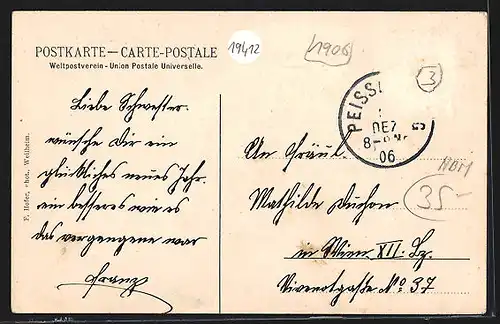 POSTKARTE—CARTE-POSTALE
Weltpostverein - Union Postale Universelle.
19412
1906
3
PEISS
DEZ
8-9 N
06
Liebe Schwester.
wünsche Dir ein
glückliches neues Jahr.
ein besseres wie es
das vergengene war
Franz
An Fräul.
Mathilde Duchon
in Wien XII. Bz.
Vivenotgaße No 37
35-
F. Hofer, phot. Weilheim.